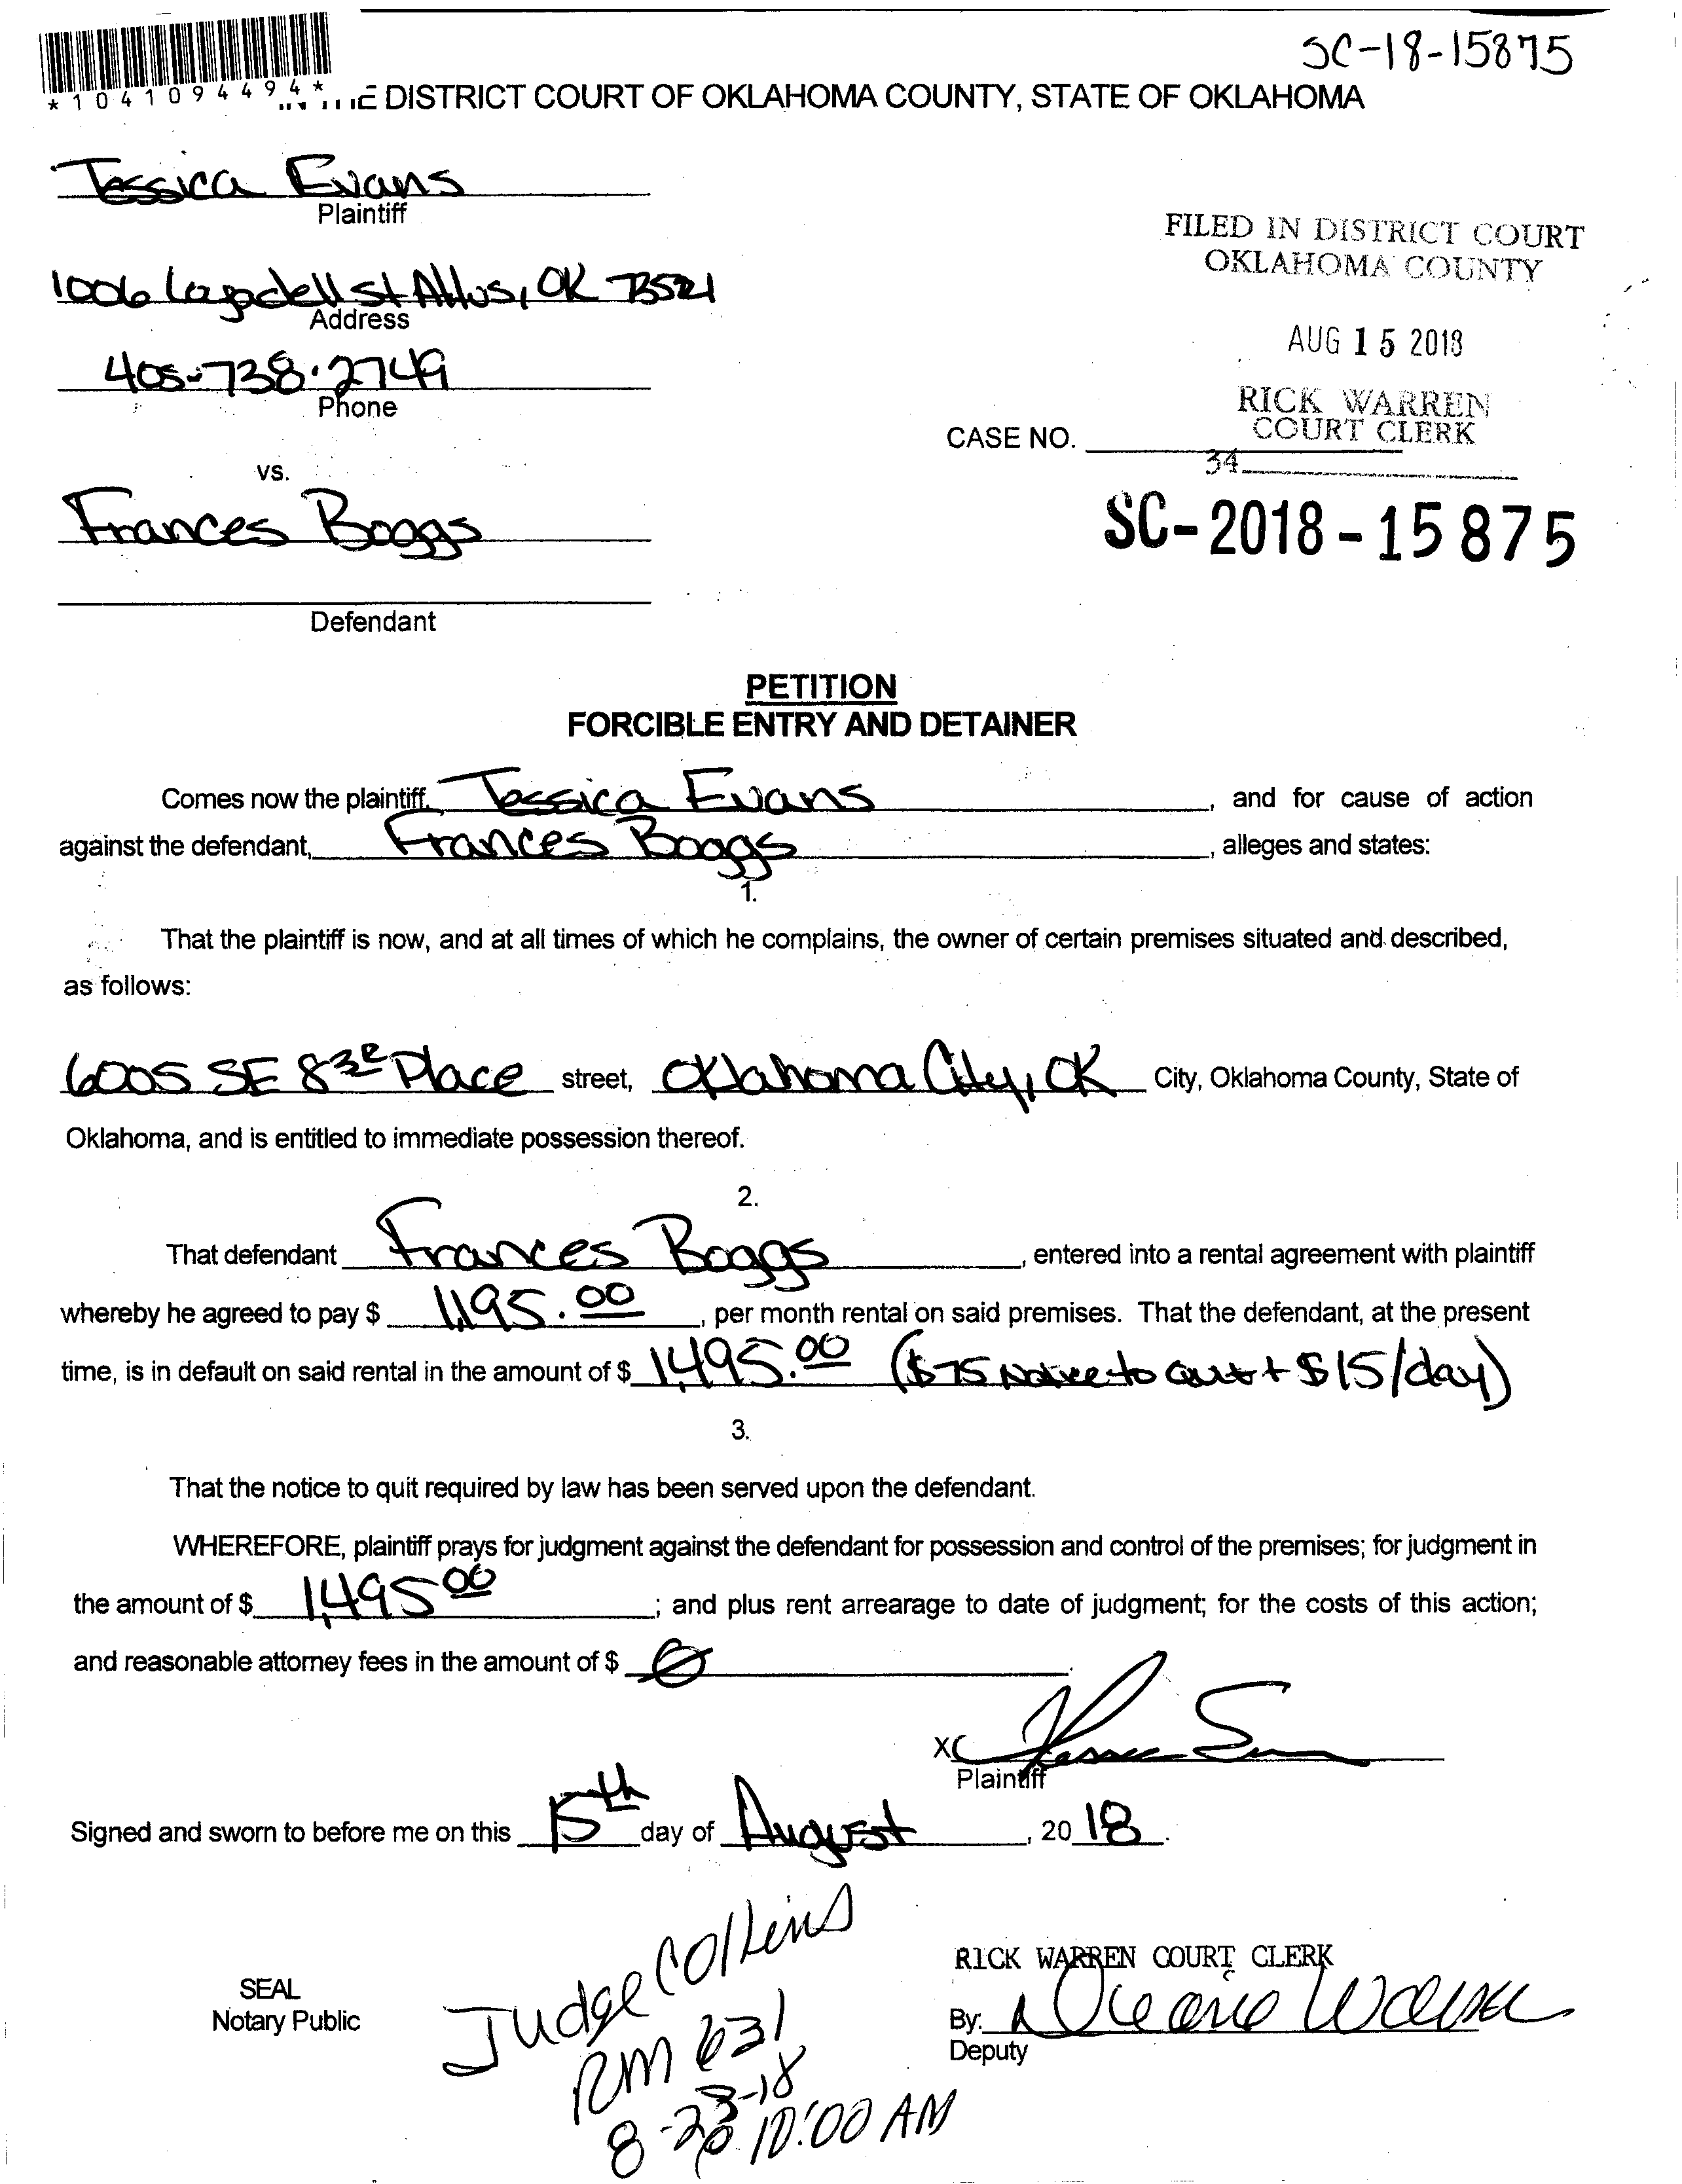 SC-18-15875
*1041094494*
E DISTRICT COURT OF OKLAHOMA COUNTY, STATE OF OKLAHOMA
Jessica Evans
Plaintiff
FILED IN DISTRICT COURT
OKLAHOMA COUNTY
1006 st Altus, OK 73521
Address
AUG 15 2018
405-738-2749
Phone
RICK WARREN
COURT CLERK
CASE NO.
34
vs.
Frances Boggs
SC-2018-15875
Defendant
PETITION
FORCIBLE ENTRY AND DETAINER
Comes now the plaintiff, Jessica Evans, and for cause of action
against the defendant, Frances Boggs, alleges and states:
1.
That the plaintiff is now, and at all times of which he complains, the owner of certain premises situated and described,
as follows:
6005 SE 83rd Place street, Oklahoma City, OK City, Oklahoma County, State of
Oklahoma, and is entitled to immediate possession thereof.
2.
That defendant Frances Boggs, entered into a rental agreement with plaintiff
whereby he agreed to pay $ 1,195.00, per month rental on said premises. That the defendant, at the present
time, is in default on said rental in the amount of $ 1,495.00 ($75 Notice to Quit + $15/day)
3.
That the notice to quit required by law has been served upon the defendant.
WHEREFORE, plaintiff prays for judgment against the defendant for possession and control of the premises; for judgment in
the amount of $ 1,495 00; and plus rent arrearage to date of judgment; for the costs of this action;
and reasonable attorney fees in the amount of $ 0
X
Plaintiff
Signed and sworn to before me on this 15th day of August, 20 18.
Judge Collins
RM 631
8-23-18
10:00 AM
SEAL
Notary Public
RICK WARREN COURT CLERK
By:
Deputy